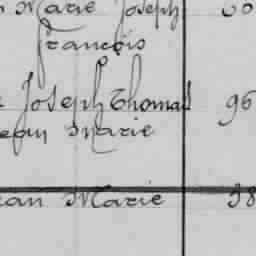 Marie Joseph
François
Joseph Thomas 96
Marie
ean Marie 98